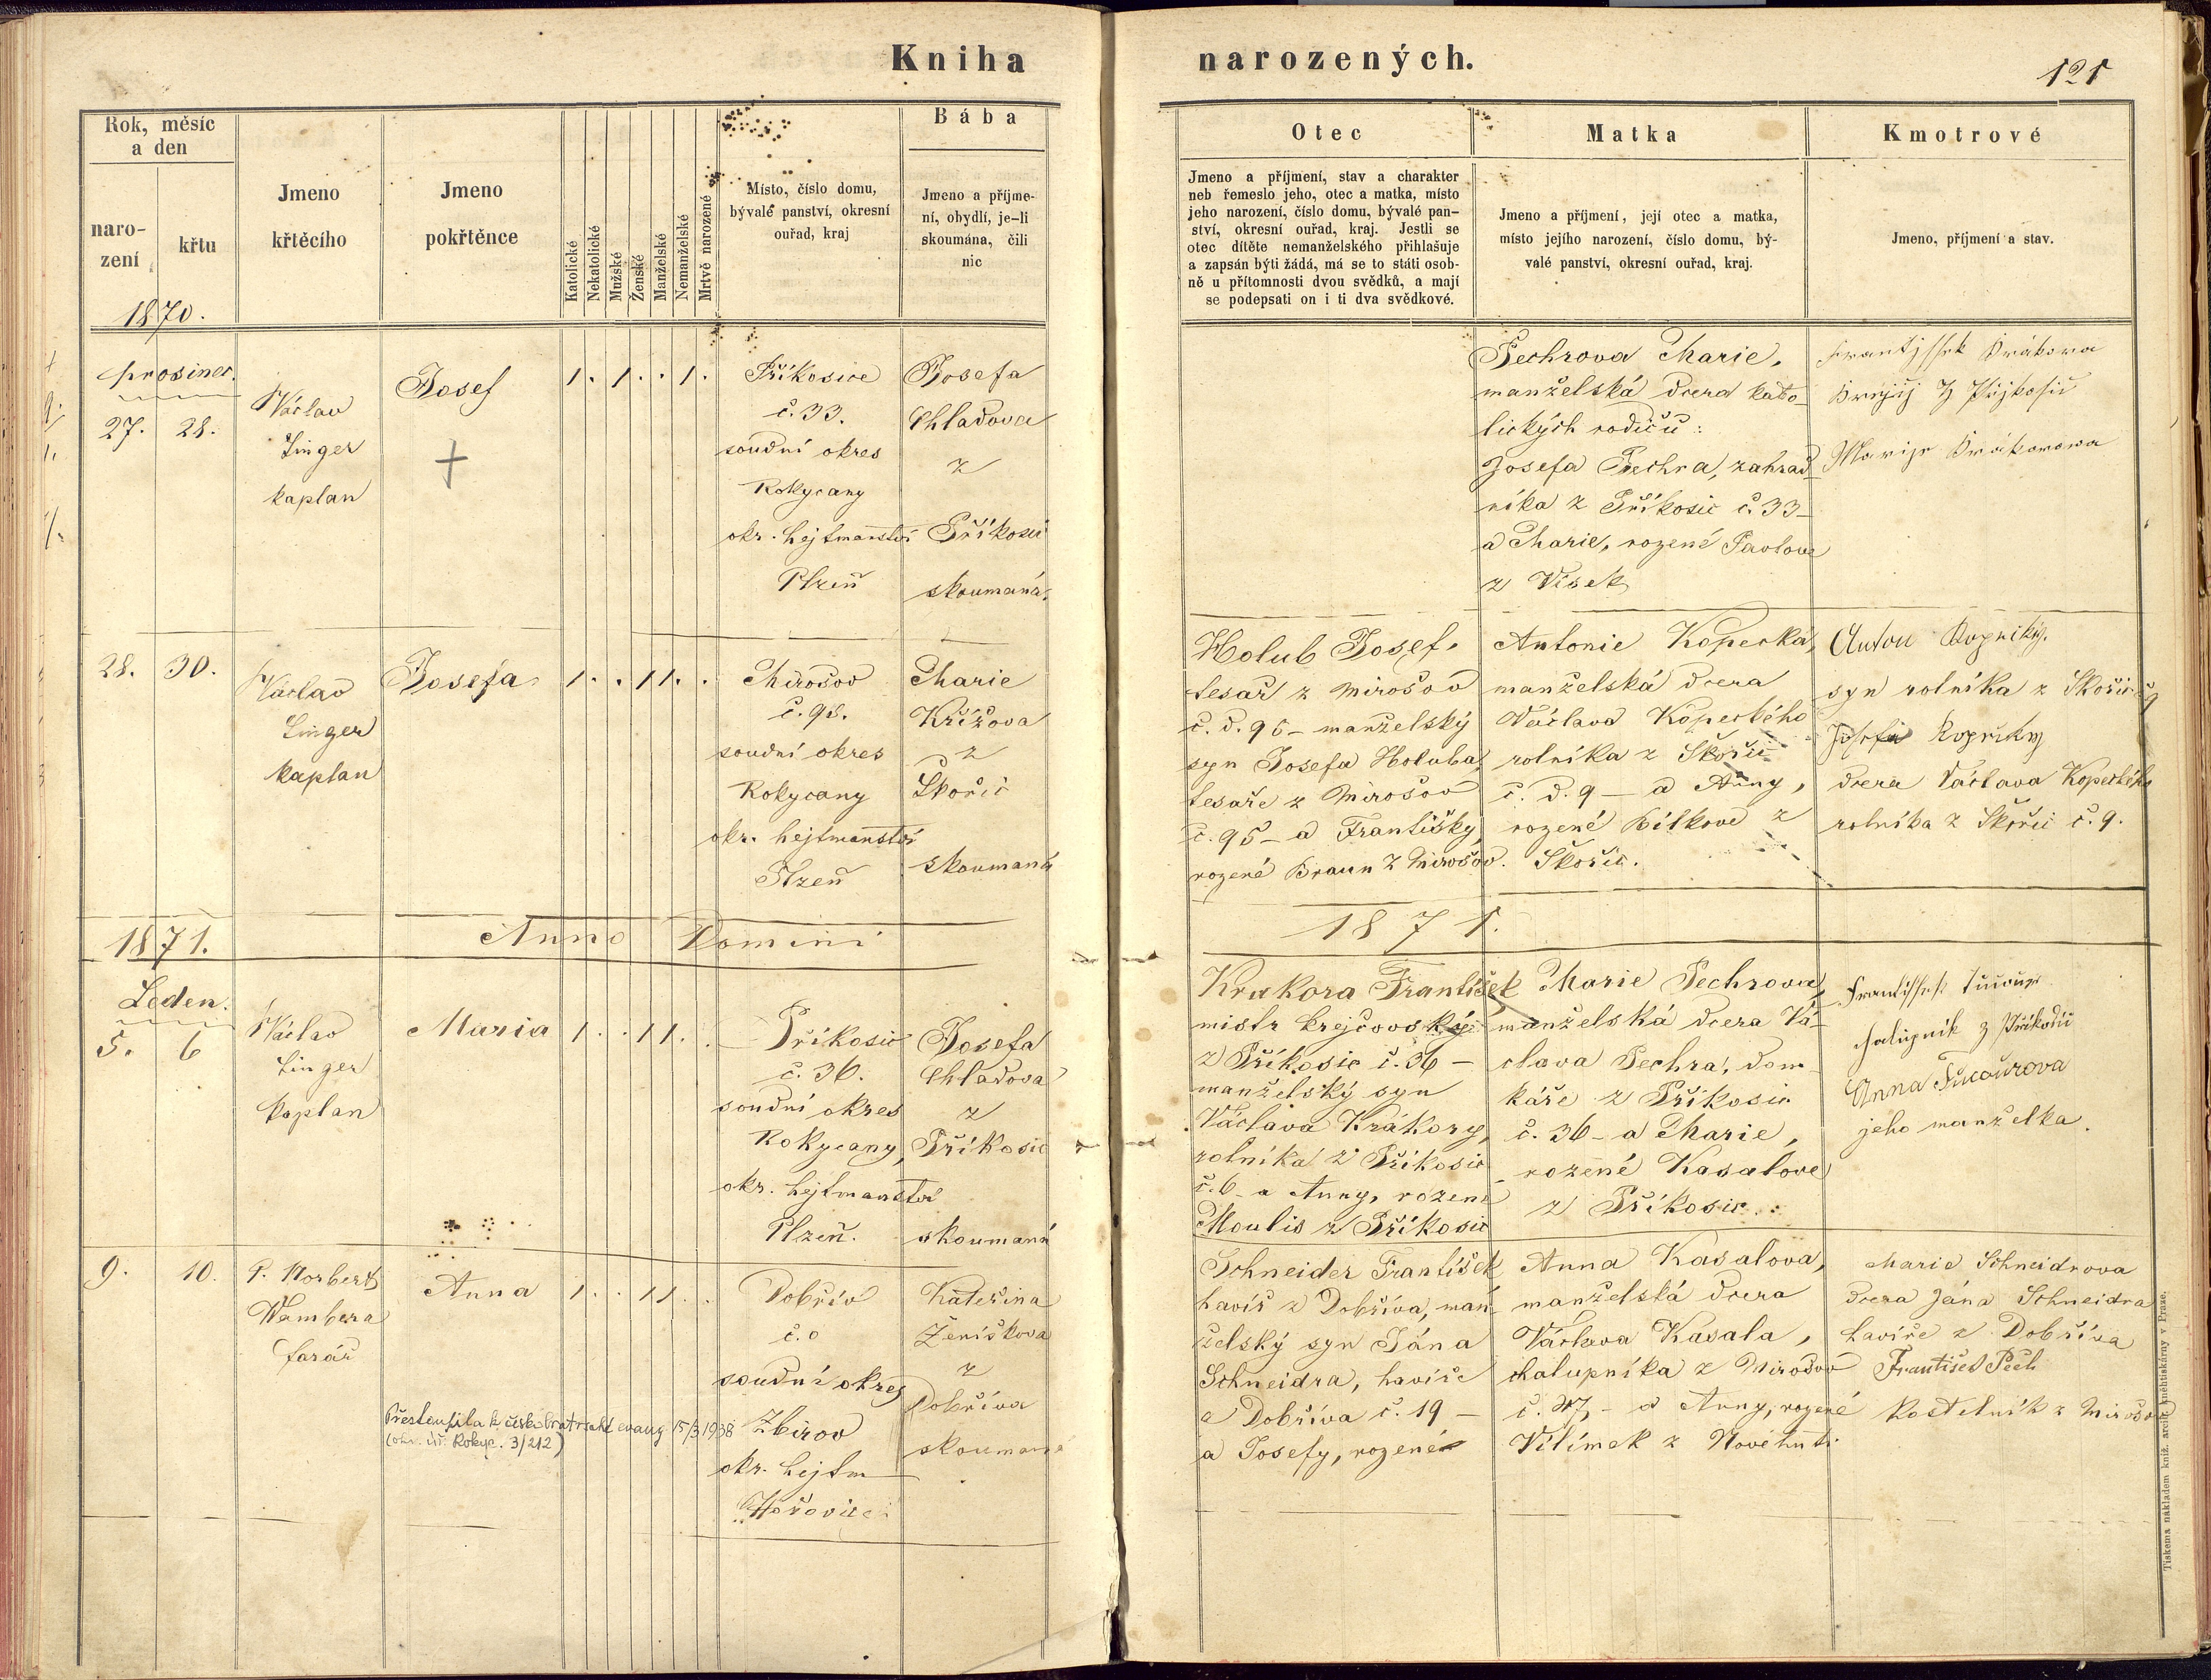 Kniha narozených.
121
Rok, měsíc a den
narození
křtu
Jmeno křtěcího
Jmeno pokřtěnce
Katolické
Nekatolické
Mužské
Ženské
Manželské
Nemanželské
Mrtvě narozené
Místo, číslo domu,
bývalé panství, okresní
ouřad, kraj
Bába
Jmeno a příjme-
ní, obydlí, je-li
skoumána, čili
nic
Otec
Jmeno a příjmení, stav a charakter
neb řemeslo jeho, otec a matka, místo
jeho narození, číslo domu, bývalé pan-
ství, okresní ouřad, kraj. Jestli se
otec dítěte nemanželského přihlašuje
a zapsán býti žádá, má se to státi osob-
ně u přítomnosti dvou svědků, a mají
se podepsati on i ti dva svědkové.
Matka
Jmeno a příjmení, její otec a matka,
místo jejího narození, číslo domu, bý-
valé panství, okresní ouřad, kraj.
Kmotrové
Jmeno, příjmení a stav.
1870.
prosinec.
27. 28.
Václav
Linger
kaplan
Josef
+
1 . 1 . . 1 .
Příkosice
č. 33.
soudní okres
Rokycany
okr. hejtmanství
Plzeň
Josefa
Chladova
z
Příkosic
skoumaná.
Pechrova Marie,
manželská dcera kato-
lických rodičů:
Josefa Pechra, zahrad-
níka z Příkosic č. 33 –
a Marie, rozené Pavlove
z Vísek
28. 30.
Václav
Linger
kaplan
Josefa
1 . . 1 1 .
Mirošov
č. 95.
soudní okres
Rokycany
okr. hejtmanství
Plzeň
Marie
Křížova
z
Skořic
skoumaná
Holub Josef,
tesař z Mirošov
č. d. 95 – manželský
syn Josefa Holuba,
tesaře z Mirošov
č. 95 – a Františky,
rozené Braun z Mirošov.
Antonie Kopecká,
manželská dcera
Václava Kopeckého
rolníka z Skořic
č. d. 9 – a Anny,
rozené Bílkove z
Skořic.
syn rolníka z Skořic č 9
dcera Václava Kopeckého
rolníka z Skořic č. 9.
1871.
Anno Domini
1871.
Leden.
5. 6
Václav
Linger
kaplan
Maria
1 . . 1 1 . .
Příkosic
č. 36.
soudní okres
Rokycany,
okr. hejtmanství
Plzeň.
Josefa
Chladova
z
Příkosic
skoumaná
Krakora František
mistr krejčovský
z Příkosic č. 36 –
manželský syn
Václava Krákory,
rolníka z Příkosic
č. 6 – a Anny, rozené
Moulis z Příkosic
Marie Pechrova,
manželská dcera Vá-
clava Pechra, dom-
káře z Příkosic
č. 36 – a Marie,
rozené Kasalove
z Příkosic.
Anna Tucaurova
jeho manželka.
9. 10.
P. Norbert
Wambera
farář
Anna
1 . . 1 1 . .
Dobřív
č. 0
soudní okres
Zbirov
okr. hejtm
Hořovice
Kateřina
Ženíškova
z
Dobříva
skoumana
Přestoupila k českobratrské evang 15/3 1938
(okr. úř. Rokyc. 3/212)
Schneider František
havíř z Dobříva, man-
želský syn Jána
Schneidra, havíře
z Dobříva č. 19 –
a Josefy, rozené
Anna Kasalova,
manželská dcera
Václava Kasala,
chalupníka z Mirošov
a Anny, rozené
Vilímek z Novéhuti
Marie Schneidrova
dcera Jána Schneidra
havíře z Dobříva
František Pech
kostelník z Mirošova
Tiskem a nákladem kníž. arcib. knihtiskárny v Praze.